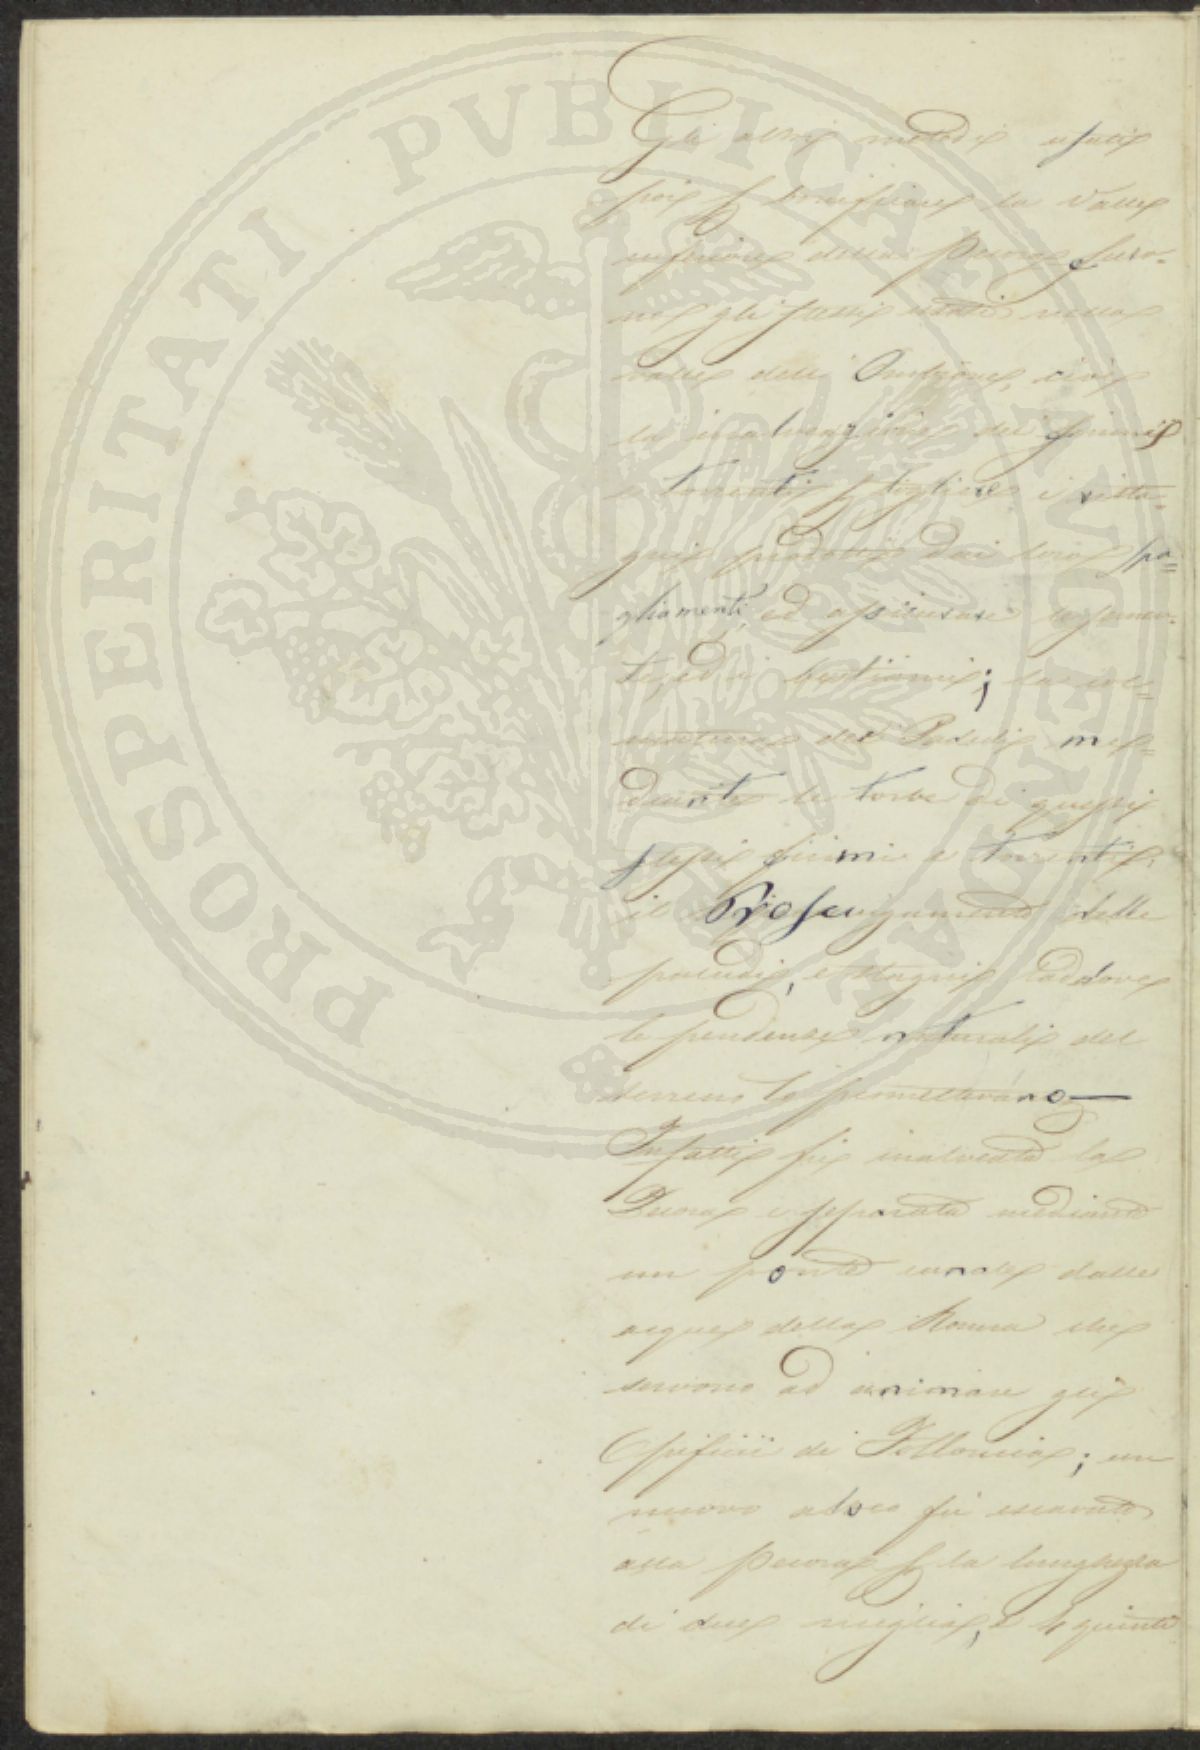 PROSPERITATI PVBLICAE AVGENDAE
Gli altri metodi usati
poi p bonificare la Valle
inferiore della Pecora furo-
no gli stessi usati nella
valle dell'
la inalveazione dei fiumi
e torrenti p togliere i rista-
gni prodotti dai loro spa-
gliamenti, ed assicurare le semen-
te, ed i bestiami; la col-
matura dei Paduli me-
diante le torbe di questi
stessi fiumi e torrenti;
il Prosciugamento delle
paludi, e stagni laddove
le pendenze naturali del
terreno lo permettevano —
Infatti fu inalveata la
Pecora e separata mediante
un ponte canale dalle
acque della Ronna che
servono ad animare gli
Opificii di Follonica; un
nuovo alveo fu escavato
alla Pecora p la lunghezza
di due miglia, e 4 quinti